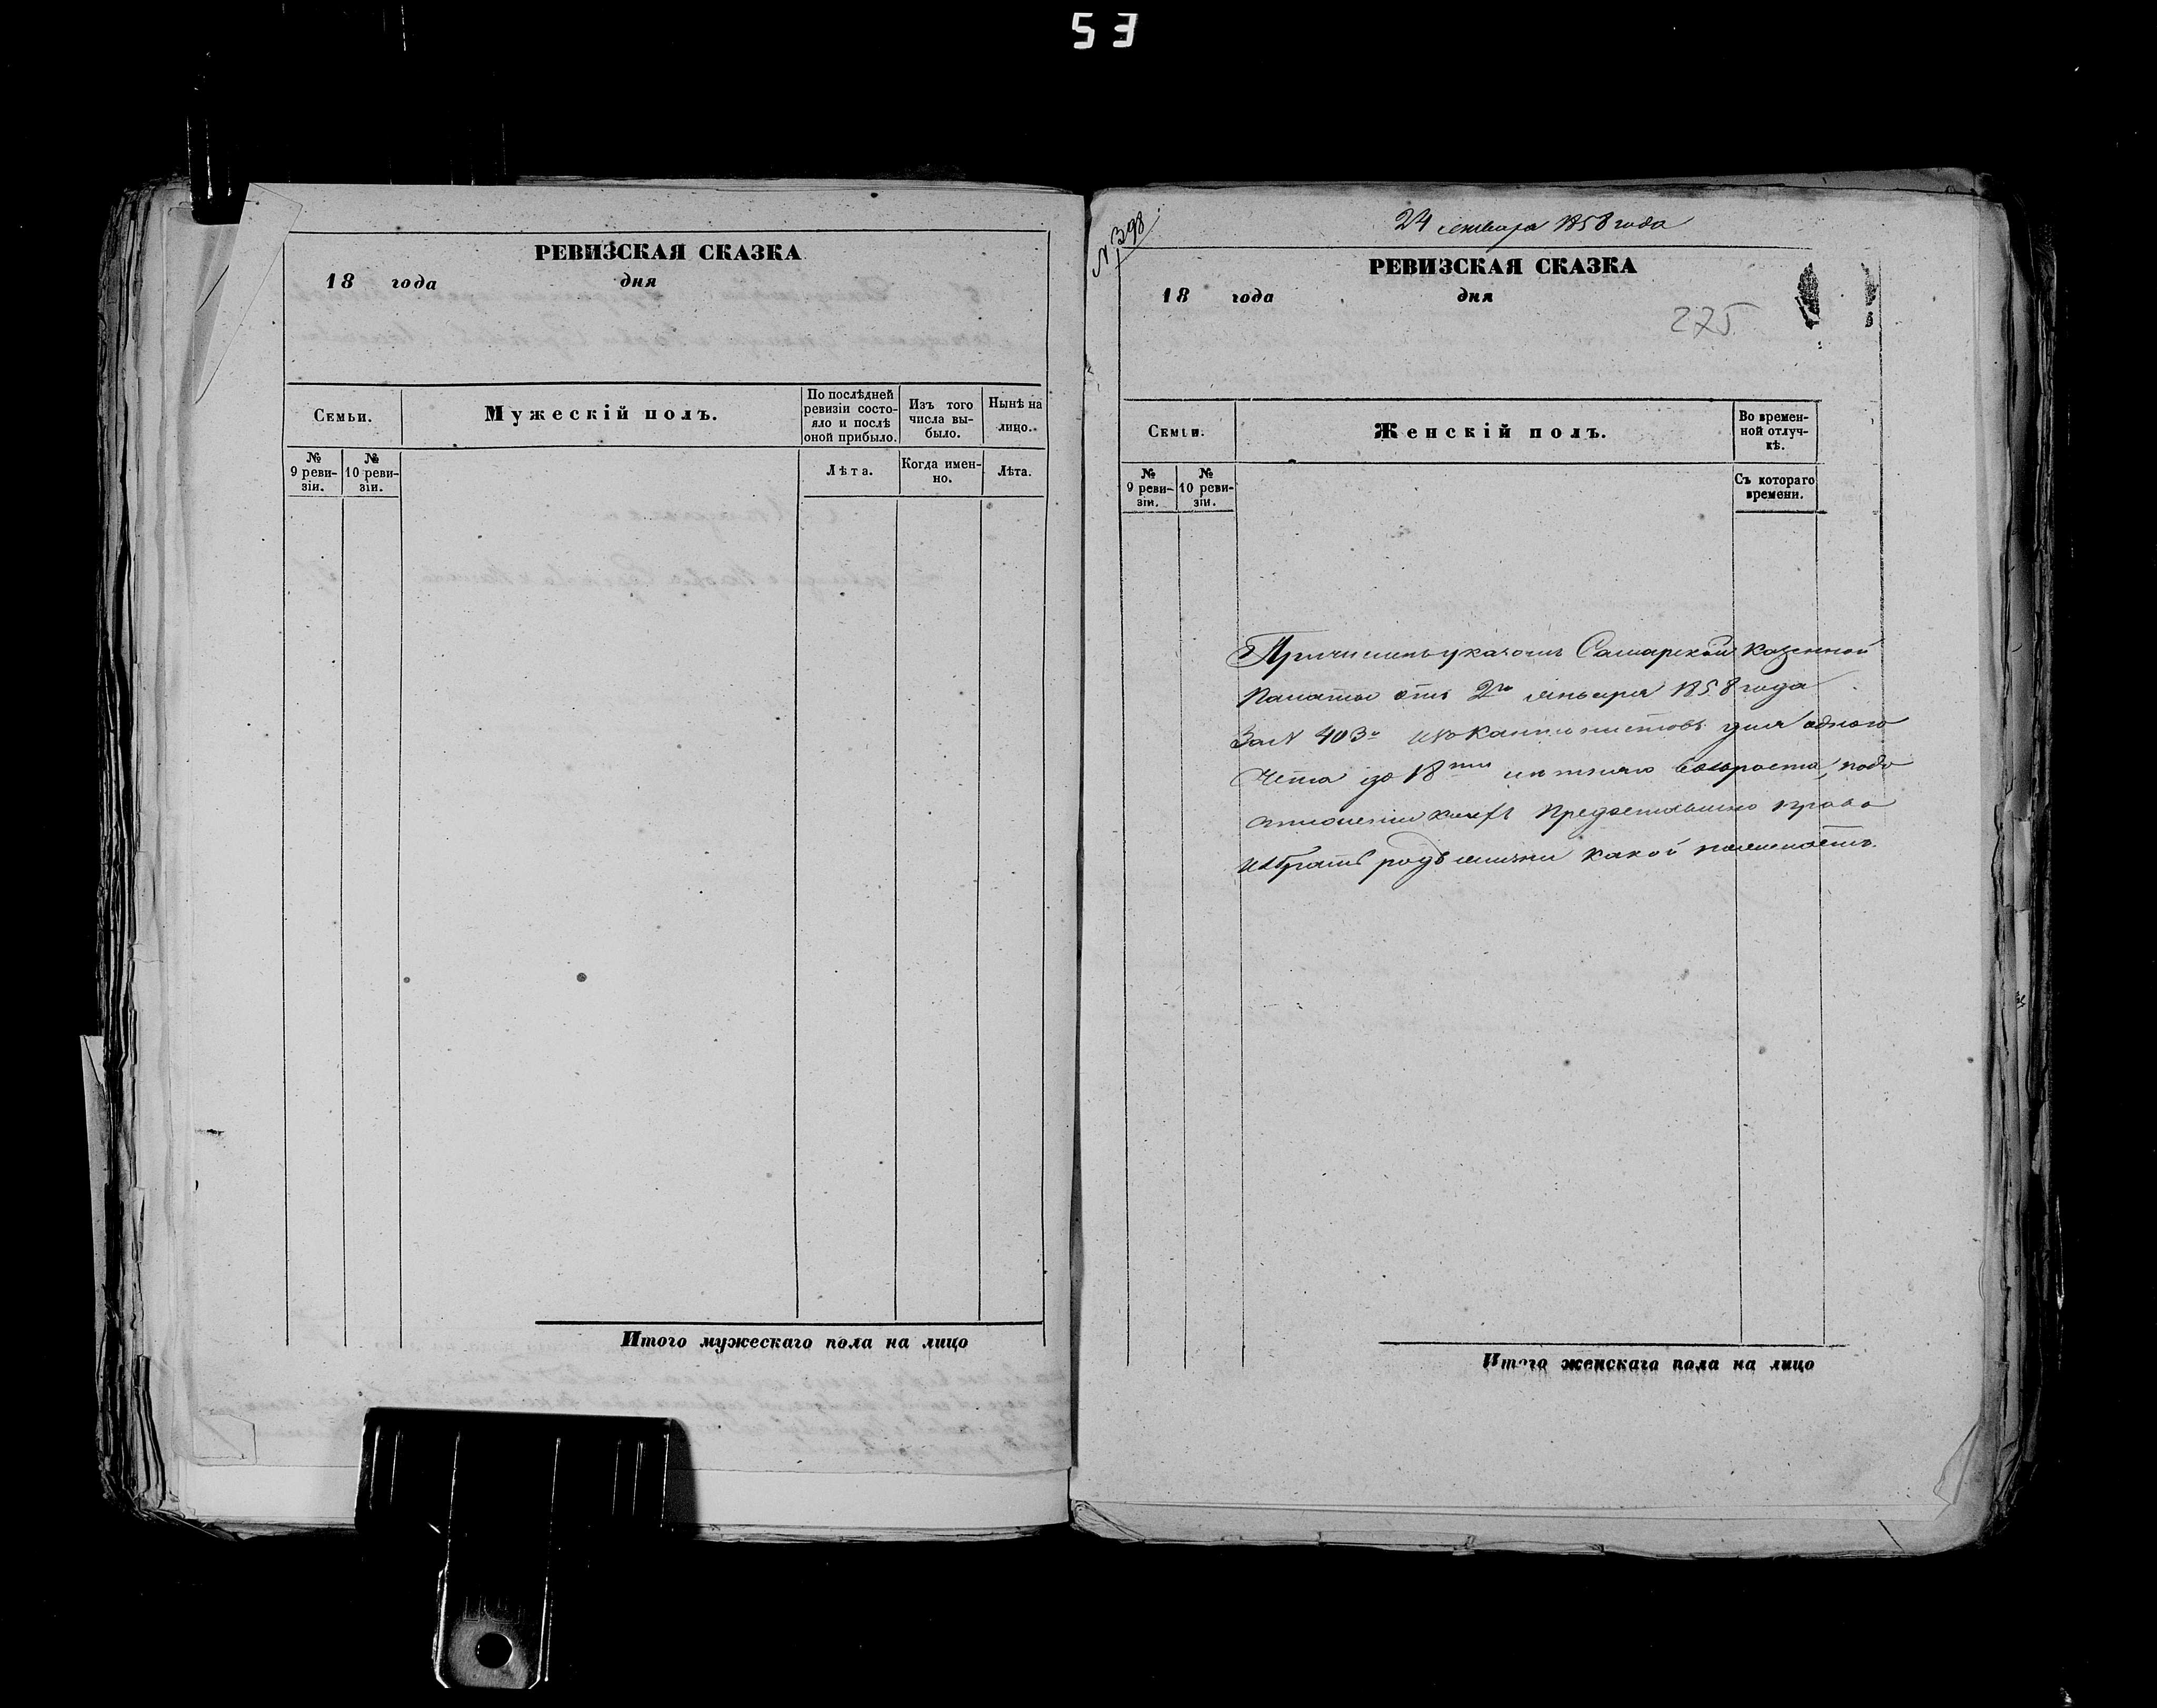 53
РЕВИЗСКАЯ СКАЗКА
18 года дня
Семьи.
Мужескій полъ.
По послѣдней ревизіи состо-
яло и послѣ оной прибыло.
Изъ того числа вы-
было.
Нынѣ на лицо.
№ 9 реви-
зіи.
№ 10 реви-
зіи.
Лѣта.
Когда имен-
но.
Лѣта.
Итого мужескаго пола на лицо
N 398
24 января 1858 года
РЕВИЗСКАЯ СКАЗКА
18 года дня
275
Семьи.
Женскій полъ.
Во времен-
ной отлуч-
кѣ.
№ 9 реви-
зіи.
№ 10 реви-
зіи.
Съ котораго времени.
Причисленъ указомъ Самарской Казенной
Палаты отъ 2го января 1858 года
За N 403м изъ кантонистовъ для одного
счета до 18ти лѣтняго возраста, подо
предоставлено право
избрать родъ жизни какой пожелаетъ.
Итого женскаго пола на лицо